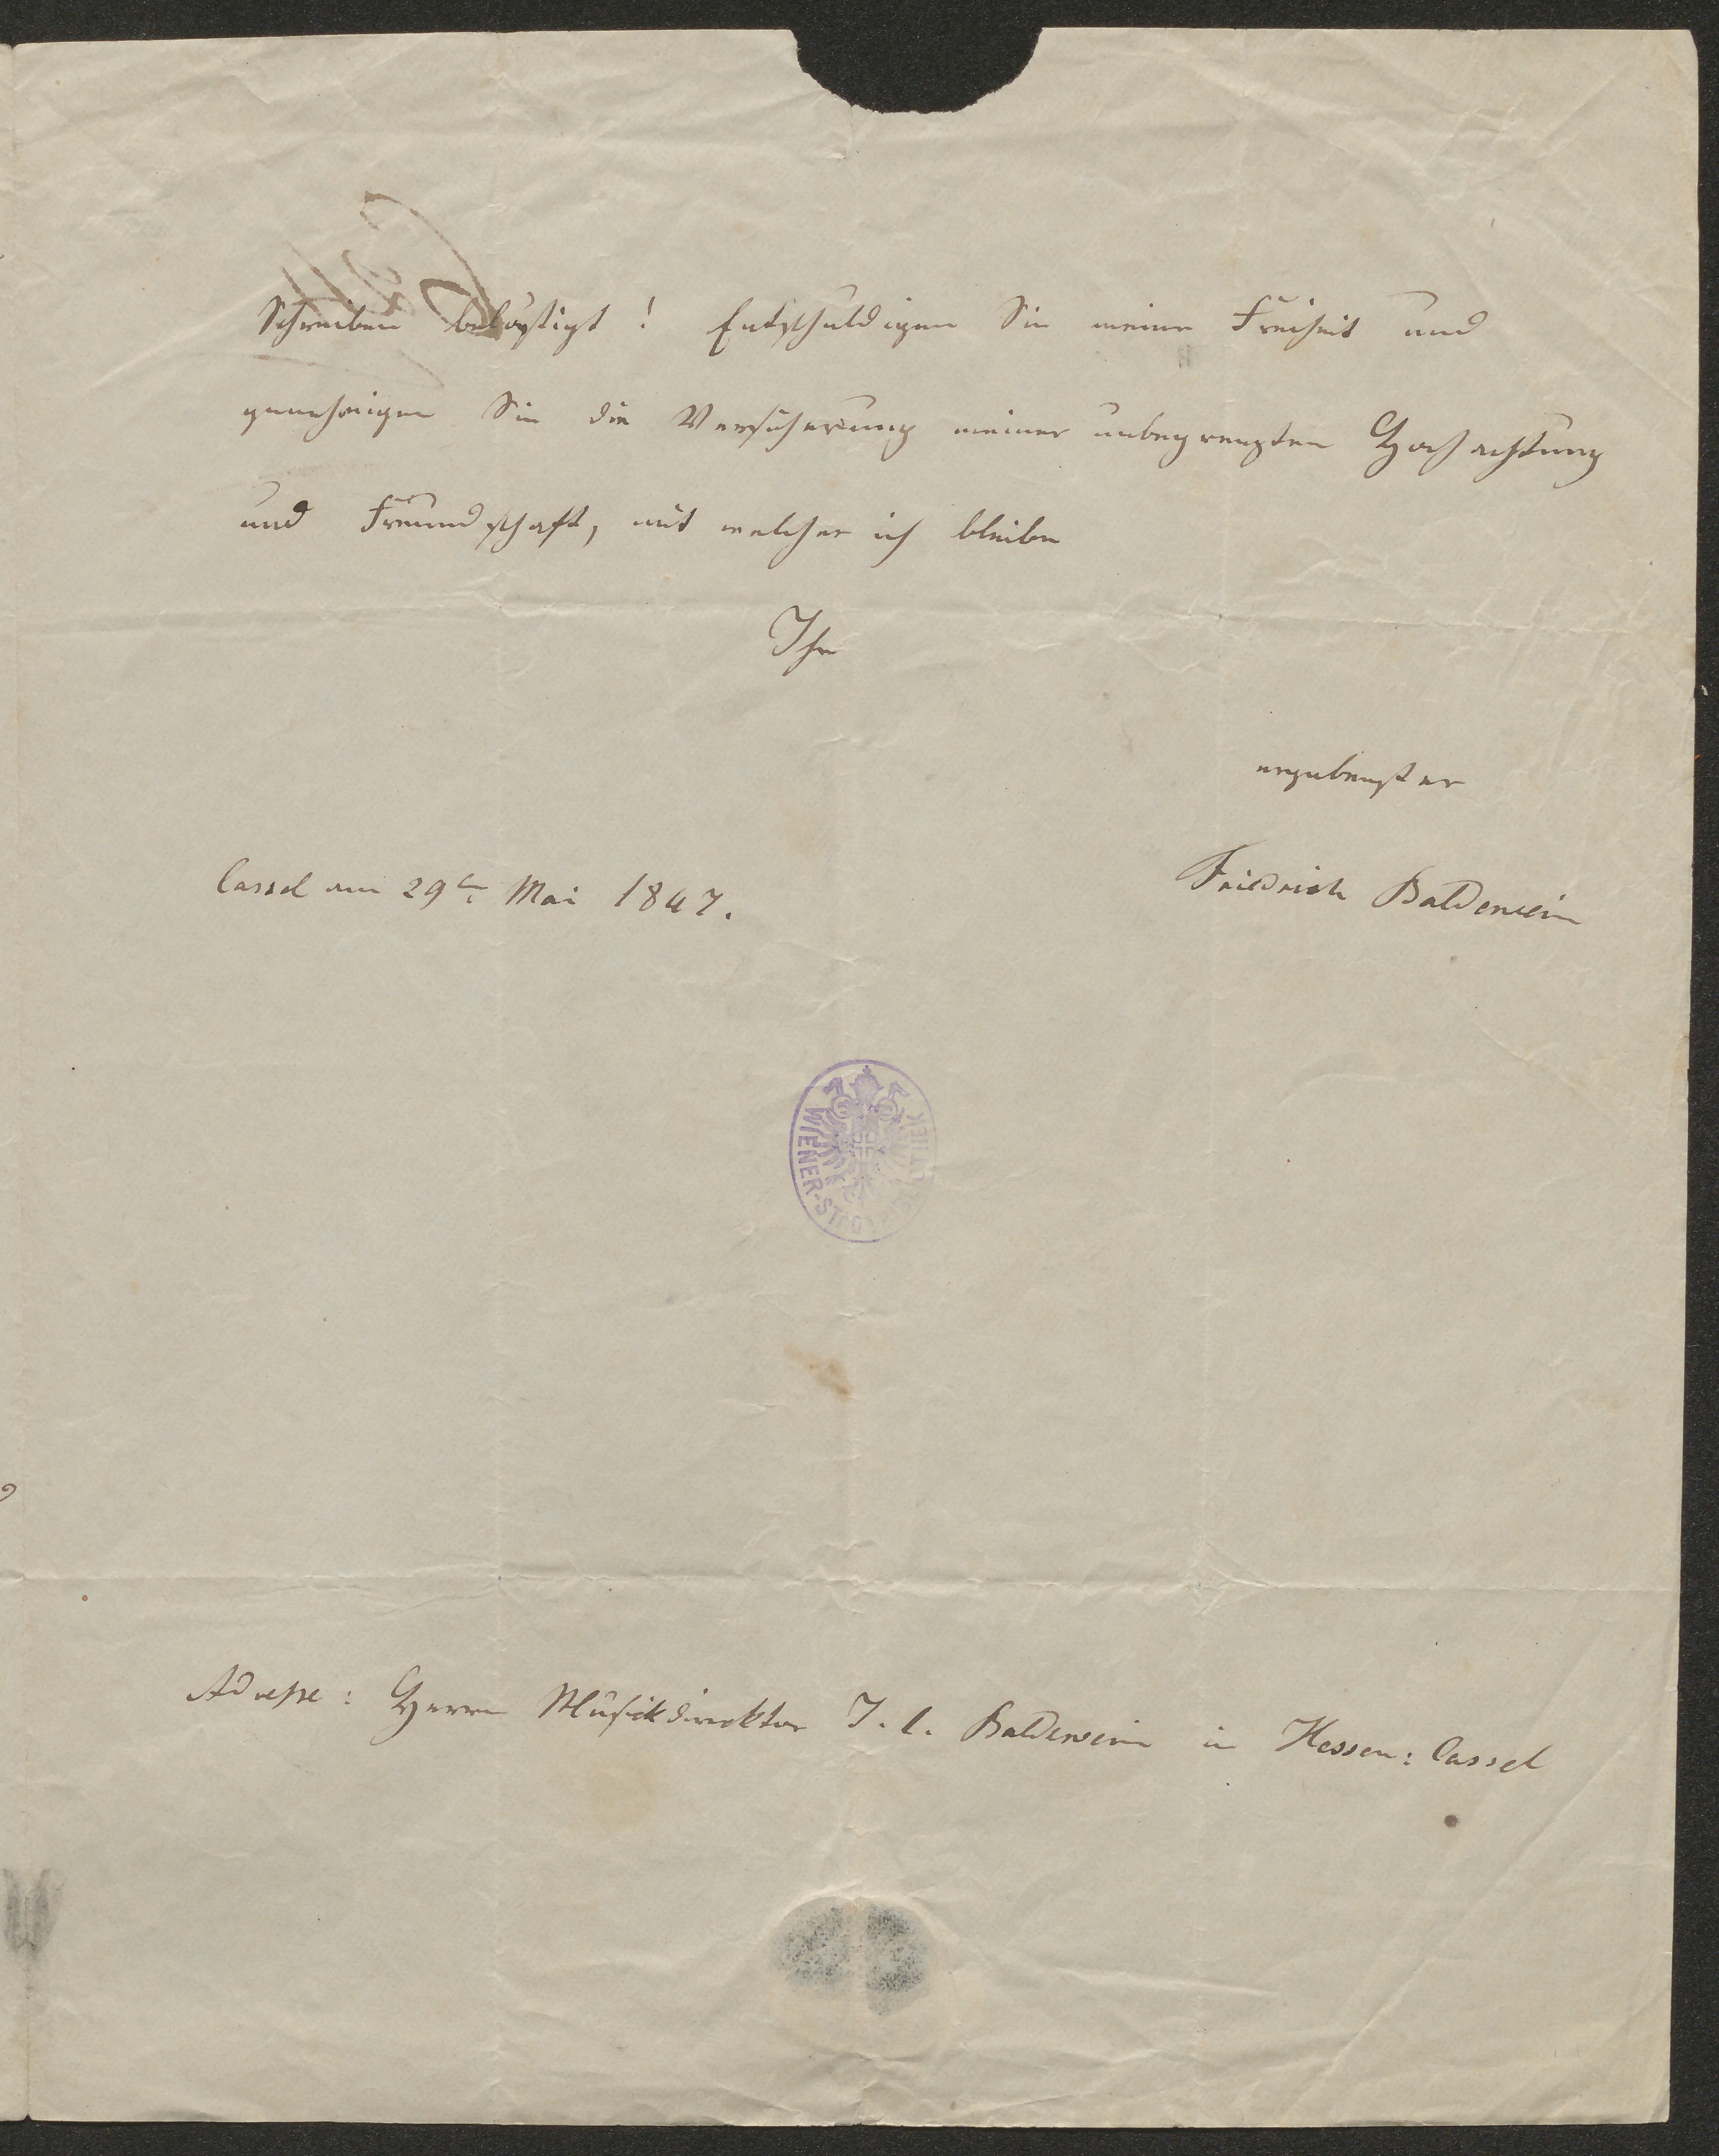 Schreiben belästigt! Entschuldigen Sie meine Freiheit und
genehmigen Sie die Versicherung meiner unbegrenzten Hochachtung
und Freundschaft, mit welcher ich bleibe
Ihr
ergebenster
Friedrich Baldewein
Cassel am 29ten Mai 1847.
WIENER-STADTBIBLIOTHEK
Adresse: Herrn Musikdirektor J. C. Baldewein in Hessen: Cassel